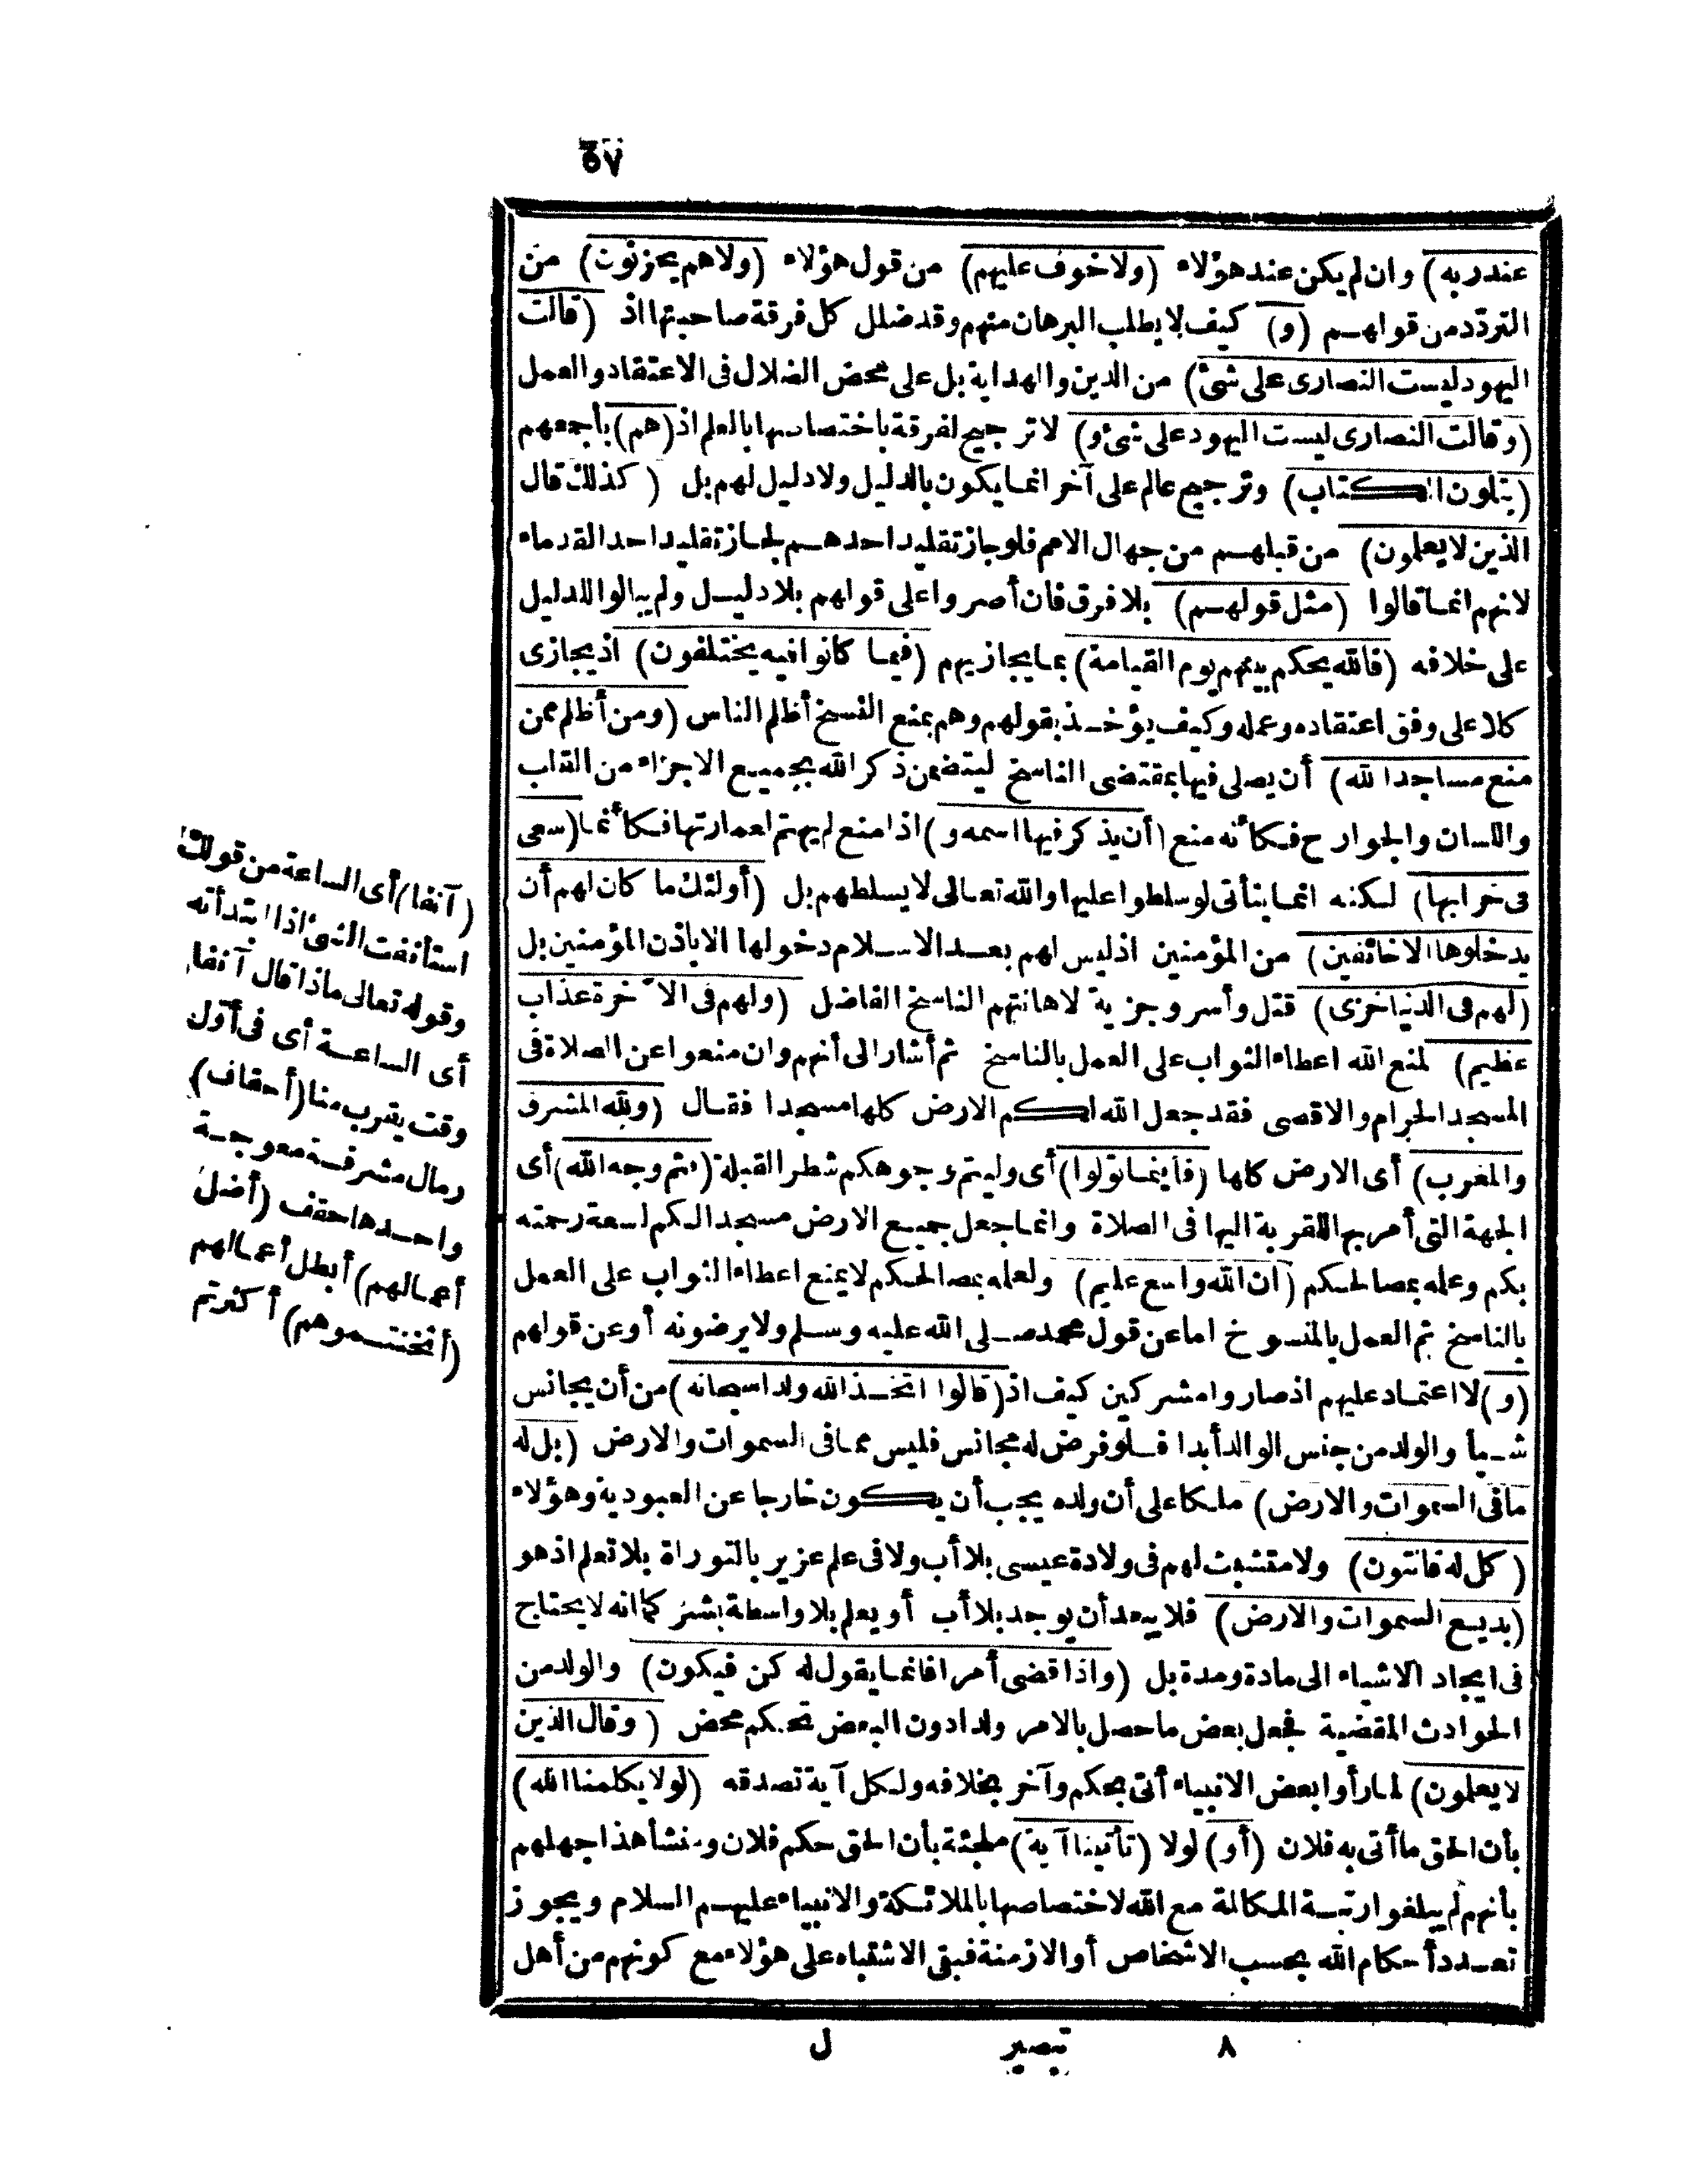 ٥٧
عند ربه) وان لم يكن عند هؤلاء (ولا خوف عليهم) من قول هؤلاء (ولا هم يحزنون) من
التردّد من قولهم (و) كيف لا يطلب البرهان منهم وقد ضلل كل فرقة صاحبتها اذ (قالت
اليهود ليست النصارى على شئ) من الدين والهداية بل على محض الضلال فى الاعتقاد والعمل
(وقالت النصارى ليست اليهود على شئ و) لا ترجيح لفرقة باختصاصها بالعلم اذ (هم) بأجمعهم
(يتلون الكتاب) وترجيح عالم على آخر انما يكون بالدليل ولا دليل لهم بل (كذلك قال
الذين لا يعلمون) من قبلهم من جهال الامم فلو جاز تقليد احدهم لجاز تقليد احد القدماء
لانهم انما قالوا (مثل قولهم) بلا فرق فان أصروا على قولهم بلا دليل ولم يبالوا للدليل
على خلافه (فالله يحكم بينهم يوم القيامة) بما يجازيهم (فيما كانوا فيه يختلفون) اذ يجازى
كلا على وفق اعتقاده وعمله وكيف يؤخذ بقولهم وهم بمنع النسخ أظلم الناس (ومن أظلم ممن
منع مساجد الله) أن يصلى فيها بمقتضى الناسخ ليتضمن ذكر الله بجميع الاجزاء من القلب
واللسان والجوارح فكأنه منع (أن يذكر فيها اسمه و) اذا منع لم يهتم لعمارتها فكأنما (سعى
فى خرابها) لكنه انما يتأتى لو سلطوا عليها والله تعالى لا يسلطهم بل (أولئك ما كان لهم أن
يدخلوها الا خائفين) من المؤمنين اذ ليس لهم بعد الاسلام دخولها الا باذن المؤمنين بل
(لهم فى الدنيا خزى) قتل وأسر وجزية لاهانتهم الناسخ الفاضل (ولهم فى الآخرة عذاب
عظيم) لمنع الله اعطاء الثواب على العمل بالناسخ ثم أشار الى أنهم وان منعوا عن الصلاة فى
المسجد الحرام والاقصى فقد جعل الله لكم الارض كلها مسجدا فقال (ولله المشرق
والمغرب) أى الارض كلها (فأينما تولوا) أى وليتم وجوهكم شطر القبلة (فثم وجه الله) أى
الجهة التى أمر بها للقربة اليها فى الصلاة وانما جعل جميع الارض مسجدا لكم لسعة رحمته
بكم وعلمه بمصالحكم (ان الله واسع عليم) ولعلمه بمصالحكم لا يمنع اعطاء الثواب على العمل
بالناسخ ثم العمل بالمنسوخ اما عن قول محمد صلى الله عليه وسلم ولا يرضونه أو عن قولهم
(و) لا اعتماد عليهم اذ صاروا مشركين كيف اذ (قالوا اتخذ الله ولدا سبحانه) من أن يجانس
شيأ والولد من جنس الوالد أبدا فلو فرض له مجانس فليس مما فى السموات والارض (بل له
ما فى السموات والارض) ملكا على أن ولده يجب أن يكون خارجا عن العبودية وهؤلاء
(كل له قانتون) ولا متشبث لهم فى ولادة عيسى بلا أب ولا فى علم عزير بالتوراة بلا تعلم اذ هو
(بديع السموات والارض) فلا يبعد أن يوجد بلا أب أو يعلم بلا واسطة بشر كما انه لا يحتاج
فى ايجاد الاشياء الى مادة ومدة بل (واذا قضى أمرا فانما يقول له كن فيكون) والولد من
الحوادث المقضية فجعل بعض ما حصل بالامر ولدا دون البعض تحكم محض (وقال الذين
لا يعلمون) لما رأوا بعض الانبياء أتى بحكم وآخر بخلافه ولكل آية تصدقه (لولا يكلمنا الله)
بأن الحق ما أتى به فلان (أو) لولا (تأتينا آية) ملجئة بأن الحق حكم فلان ومنشأ هذا جهلهم
بأنهم لم يبلغوا رتبة المكالمة مع الله لاختصاصها بالملائكة والانبياء عليهم السلام ويجوز
تعدد أحكام الله بحسب الاشخاص أو الازمنة فبقى الاشتباه على هؤلاء مع كونهم من أهل
(آنفا) أى الساعة من قولك
استأنفت الشئ اذا ابتدأته
وقوله تعالى ماذا قال آنفا
أى الساعة أى فى أول
وقت يقرب منا (أحقاف)
رمال مشرفة معوجة
واحدها حقف (أضل
أعمالهم) أبطل أعمالهم
(أثخنتموهم) أكثرتم
٨ تبصير ل